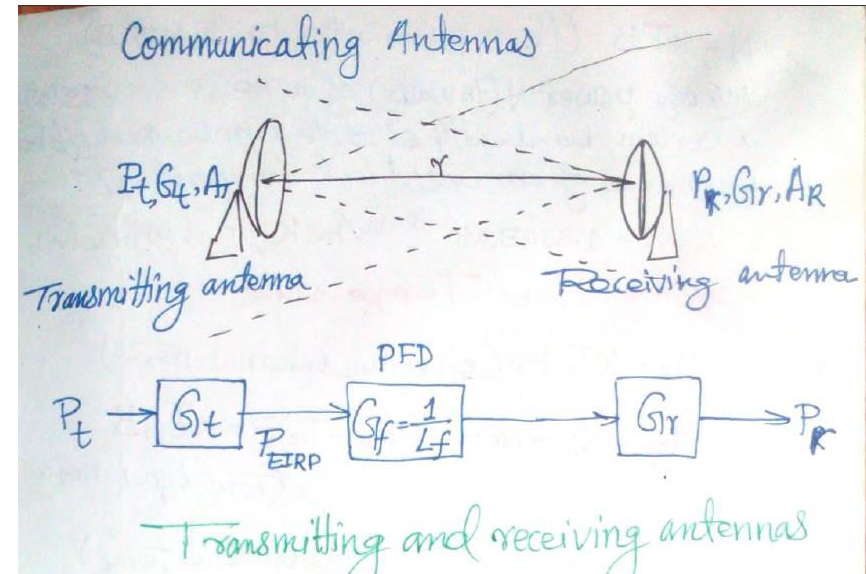 Communicating Antennas
r
Pt, Gt, AT
PR, Gr, AR
Transmitting antenna
Receiving antenna
PFD
Pt
Gt
PEIRP
Gf = 1/Lf
Gr
PR
Transmitting and receiving antennas